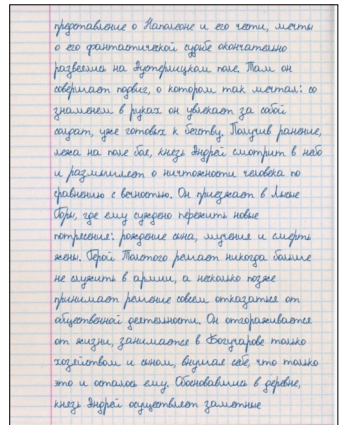 представление о Наполеоне и его чести, мечты
о его фантастической судьбе окончательно
развеяны на Аустерлицком поле. Там он
совершает подвиг, о котором так мечтал: со
знаменем в руках он увлекает за собой
солдат, уже готовых к бегству. Получив ранение,
лежа на поле боя, князь Андрей смотрит в небо
и размышляет о ничтожности человека по
сравнению с вечностью. Он приезжает в Лысые
Горы, где ему суждено пережить новые
потрясения: рождение сына, мучения и смерть
жены. Герой Толстого решает никогда больше
не служить в армии, а несколько позже
принимает решение совсем отказаться от
общественной деятельности. Он отгораживается
от жизни, занимается в Богучарове только
хозяйством и сыном, внушая себе, что только
это и осталось ему. Обосновавшись в деревне,
князь Андрей осуществляет заметные